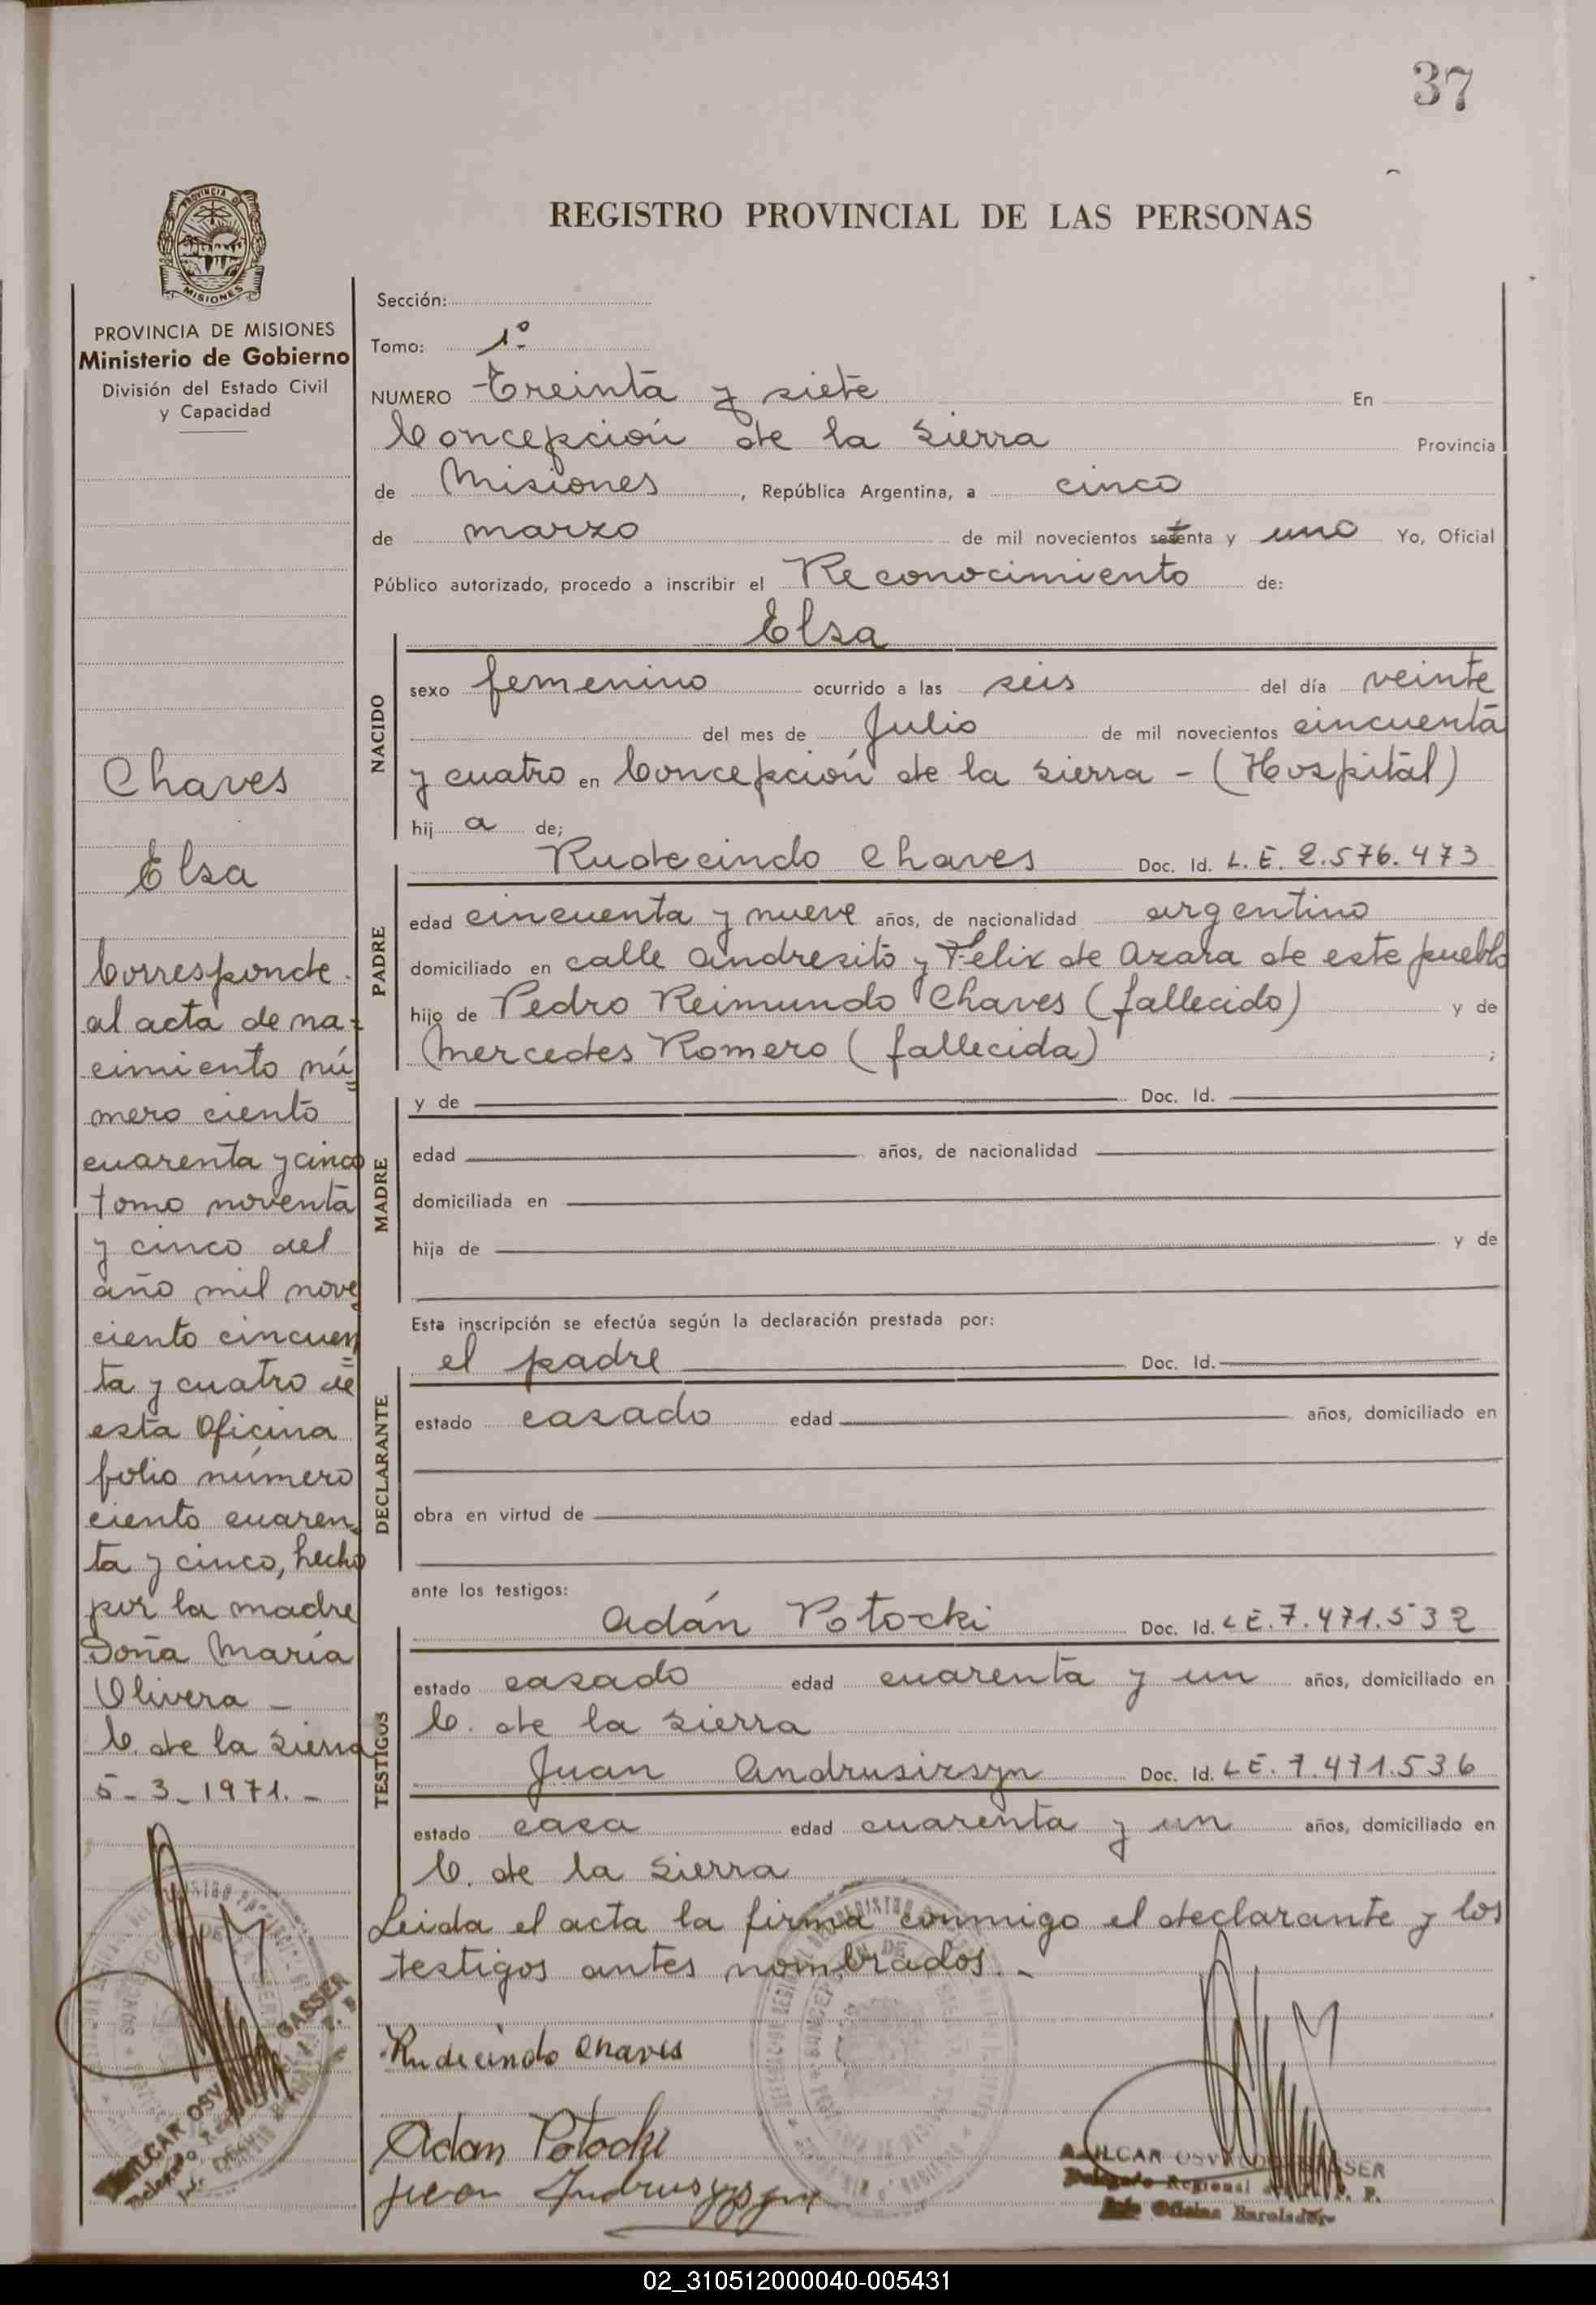 37
REGISTRO PROVINCIAL DE LAS PERSONAS
PROVINCIA DE MISIONES
Ministerio de Gobierno
División del Estado Civil
y Capacidad
Chaves
Elsa
Corresponde
al acta de na-
cimiento nú=
mero ciento
cuarenta y cinco
tomo noventa
y cinco del
año mil nove
ciento cincuen=
ta y cuatro de
esta Oficina
folio número
ciento cuaren-
ta y cinco, hecho
por la madre
Doña María
Olivera -
C. de la Sierra
5-3-1971.-
Sección:
Tomo: 1º
NUMERO Treinta y siete En
Concepción de la Sierra Provincia
de Misiones, República Argentina, a cinco
de marzo de mil novecientos setenta y uno Yo, Oficial
Público autorizado, procedo a inscribir el Reconocimiento de:
Elsa
NACIDO
sexo femenino ocurrido a las seis del día veinte
del mes de Julio de mil novecientos cincuenta
y cuatro en Concepción de la Sierra - (Hospital)
hij a de;
Rudecindo Chaves Doc. Id. L.E. 2.576.473
PADRE
edad cincuenta y nueve años, de nacionalidad argentino
domiciliado en calle Andresito y Felix de Azara de este pueblo
hijo de Pedro Reimundo Chaves (fallecido) y de
Mercedes Romero (fallecida) ;
MADRE
y de Doc. Id.
edad años, de nacionalidad
domiciliada en
hija de y de
Esta inscripción se efectúa según la declaración prestada por:
DECLARANTE
el padre Doc. Id.
estado casado edad años, domiciliado en
obra en virtud de
ante los testigos:
TESTIGOS
Adán Potocki Doc. Id. L E. 7.471.532
estado casado edad cuarenta y un años, domiciliado en
C. de la Sierra
Juan Andrusizsyn Doc. Id. L E. 7.471.536
estado casa edad cuarenta y un años, domiciliado en
C. de la Sierra
Leida el acta la firma conmigo el declarante y los
testigos antes nombrados.-
Rudecindo Chaves
Adan Potocki
Juan
02_310512000040-005431